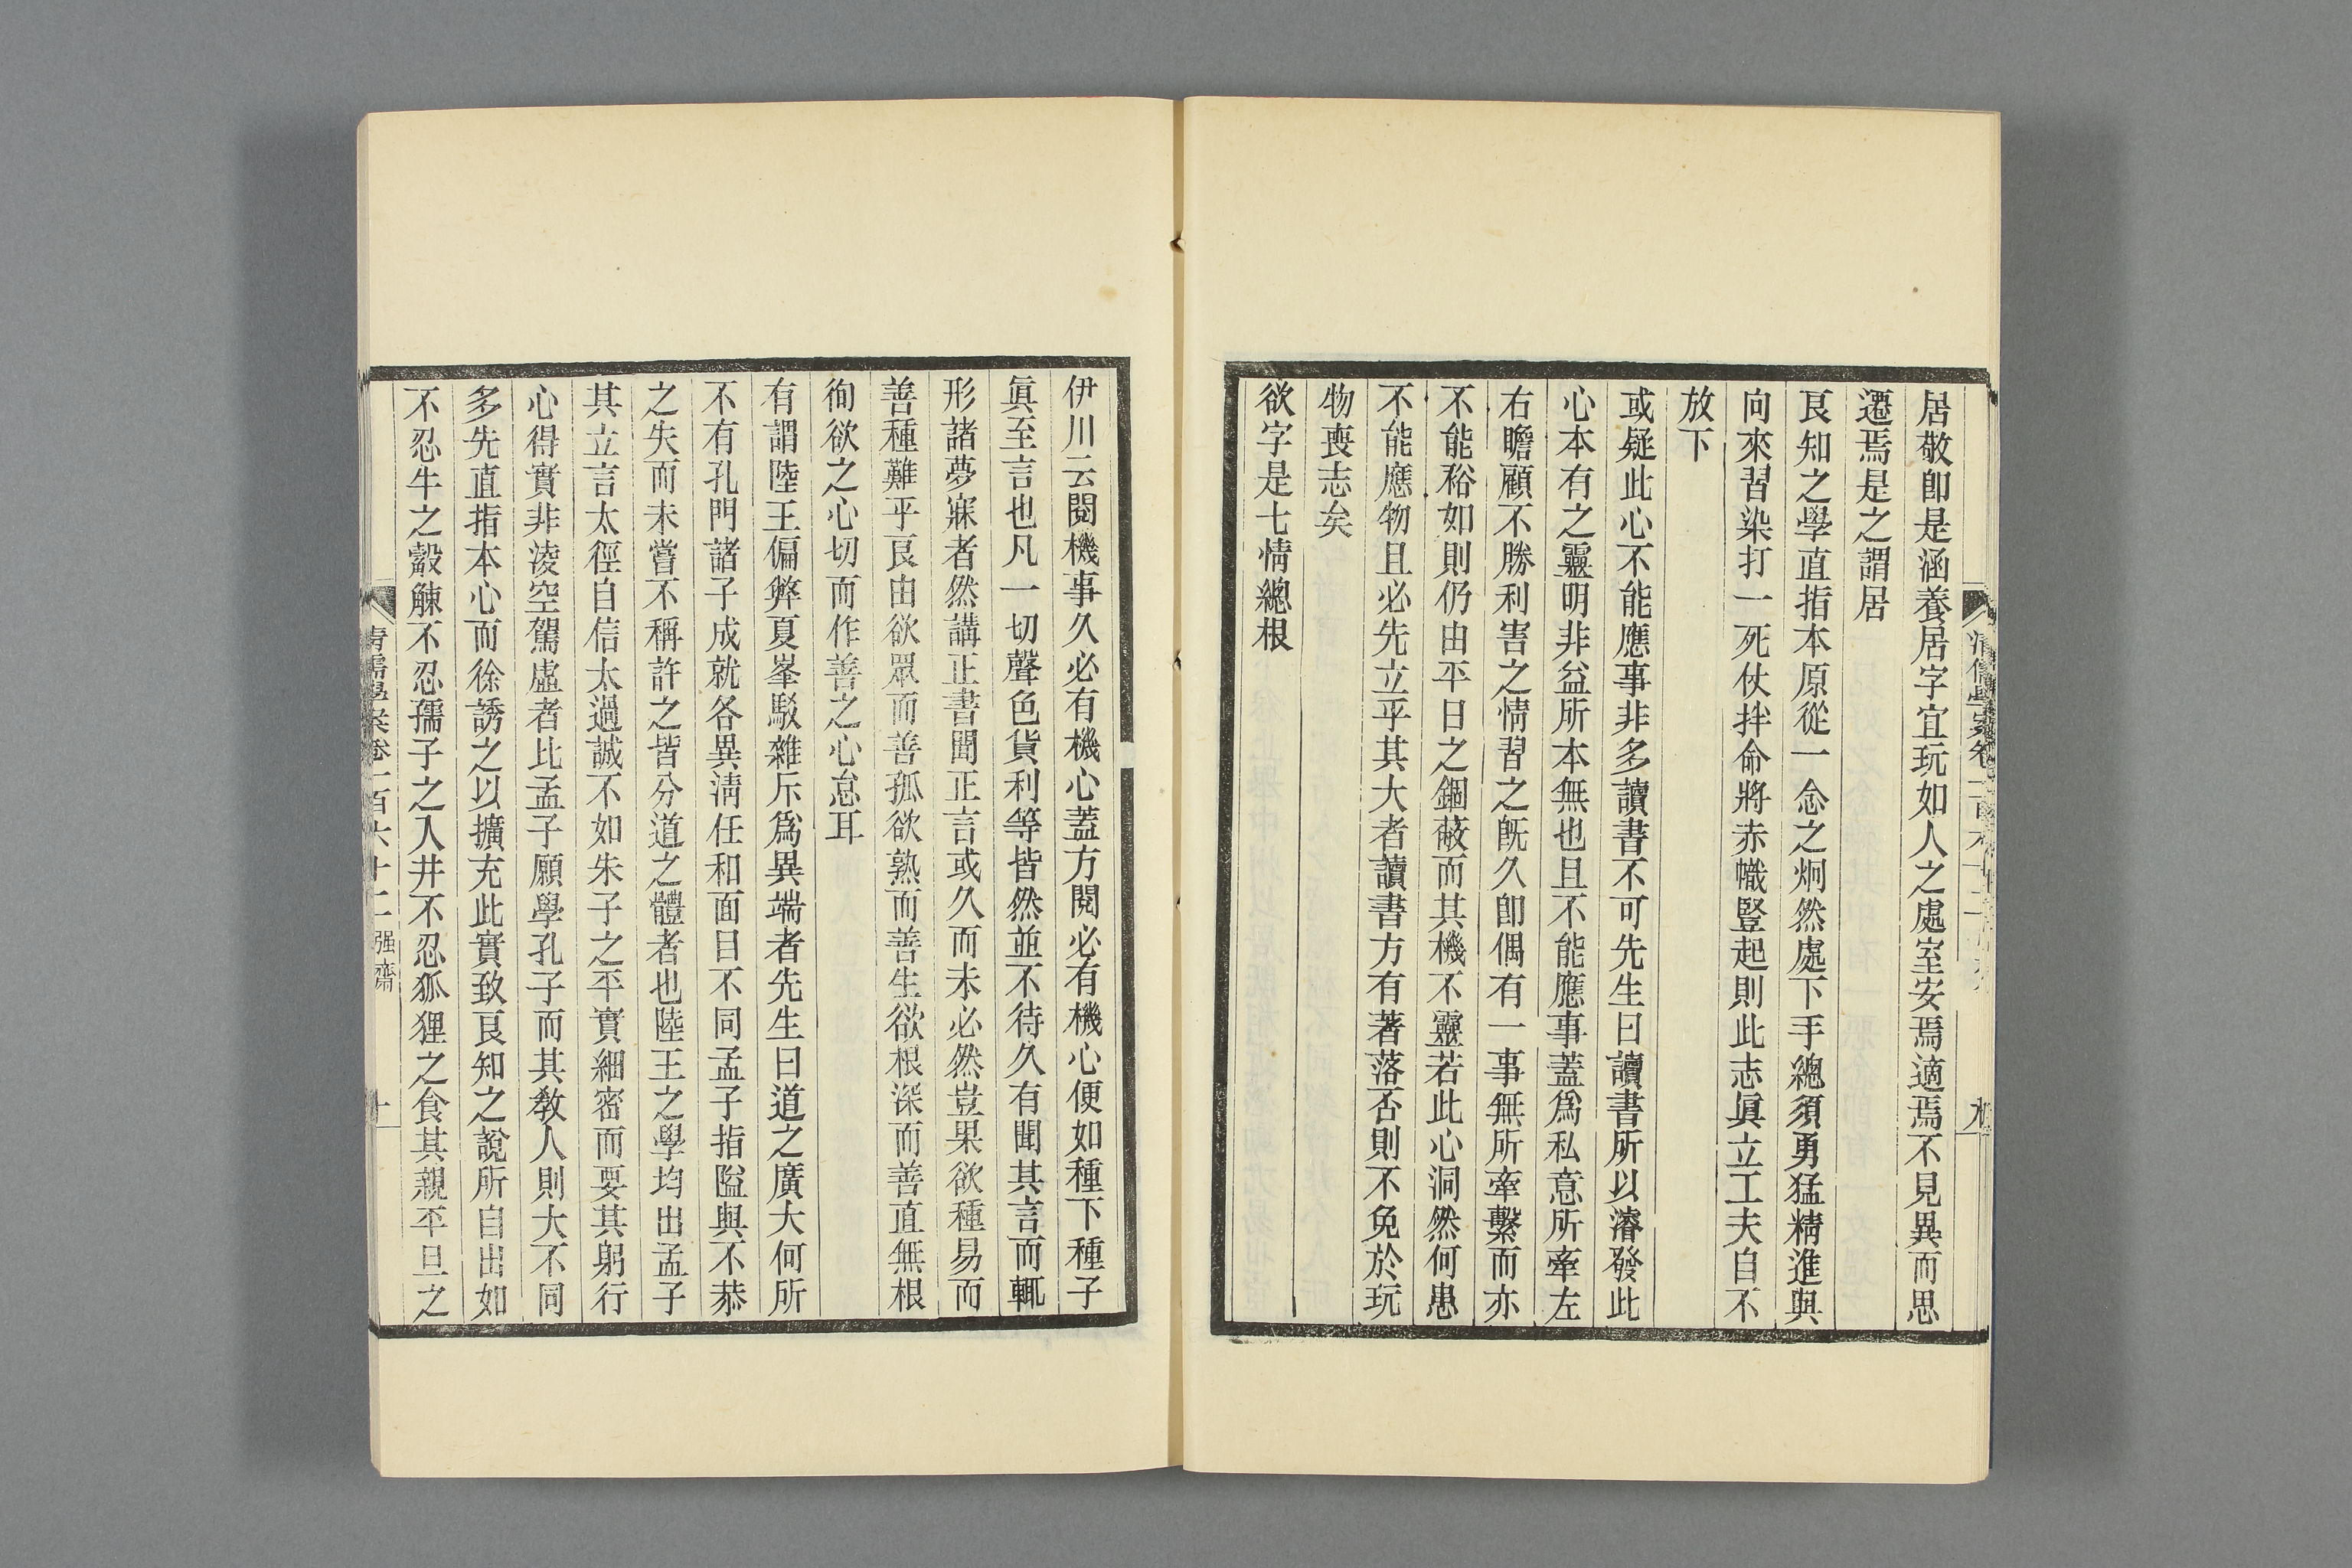 居敬卽是涵養居字宜玩如人之處室安焉適焉不見異而思
遷焉是之謂居
良知之學直指本原從一念之炯然處下手總須勇猛精進與
向來習染打一死仗拌命將赤幟豎起則此志眞立工夫自不
放下
或疑此心不能應事非多讀書不可先生曰讀書所以濬發此
心本有之靈明非益所本無也且不能應事蓋爲私意所牽左
右瞻顧不勝利害之情習之旣久卽偶有一事無所牽繫而亦
不能裕如則仍由平日之錮蔽而其機不靈若此心洞然何患
不能應物且必先立乎其大者讀書方有著落否則不免於玩
物喪志矣
欲字是七情總根
伊川云閱機事久必有機心蓋方閱必有機心便如種下種子
眞至言也凡一切聲色貨利等皆然並不待久有聞其言而輒
形諸夢寐者然講正書聞正言或久而未必然豈果欲種易而
善種難乎良由欲眾而善孤欲熟而善生欲根深而善直無根
徇欲之心切而作善之心怠耳
有謂陸王偏弊夏峯駁雜斥爲異端者先生曰道之廣大何所
不有孔門諸子成就各異淸任和面目不同孟子指隘與不恭
之失而未嘗不稱許之皆分道之體者也陸王之學均出孟子
其立言太徑自信太過誠不如朱子之平實細密而要其躬行
心得實非淩空駕虛者比孟子願學孔子而其敎人則大不同
多先直指本心而徐誘之以擴充此實致良知之說所自出如
不忍牛之觳觫不忍孺子之入井不忍狐狸之食其親平旦之
清儒學案卷一百六十二 强齋 十